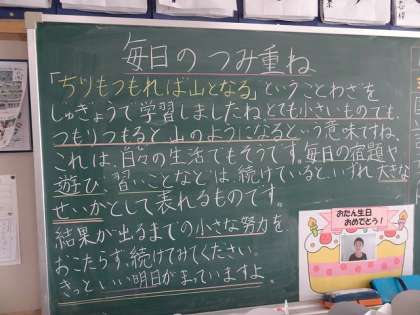 毎日のつみ重ね
「ちりもつもれば山となる」ということわざを
じゅぎょうで学習しましたね。とても小さいものでも、
つもりつもると山のようになるという意味ですね。
これは、日々の生活でもそうです。毎日の宿題や
遊び、習いごとなどは、続けていると、いずれ大きな
せいかとして表れるものです。
結果が出るまでの小さな努力を
おこたらず、続けてみてください。
きっといい明日がまっていますよ。
おたん生日
おめでとう!